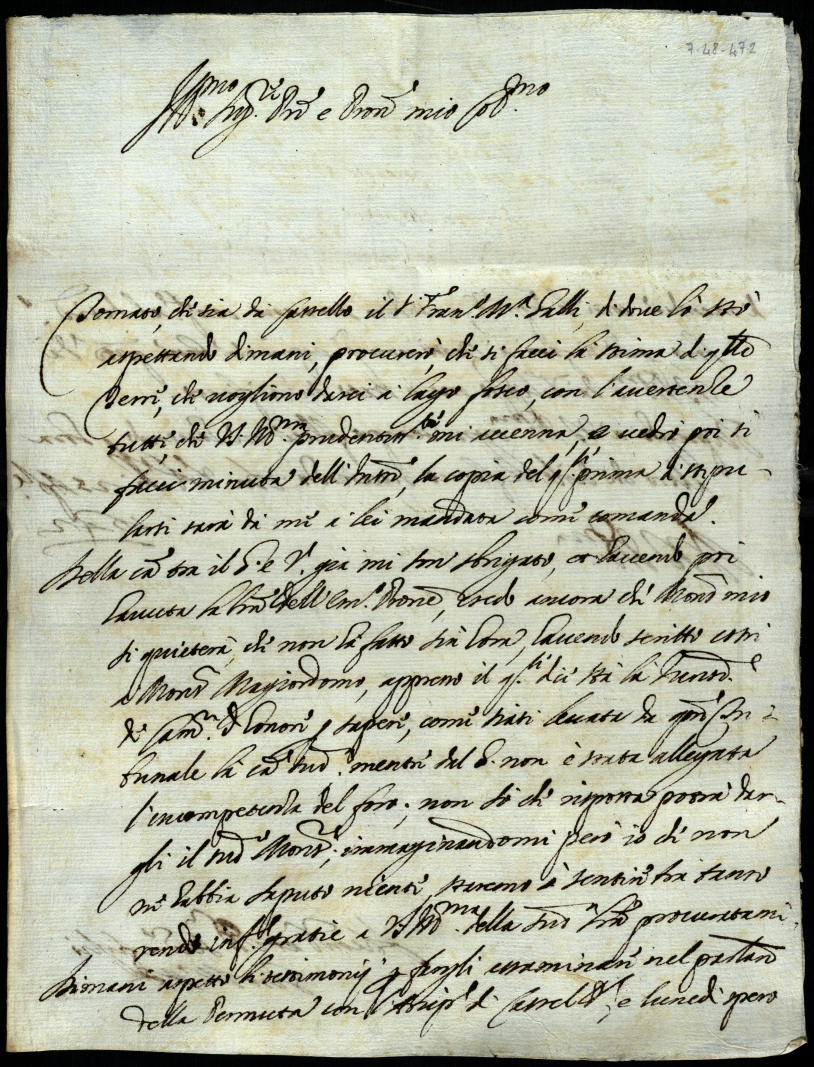 7-48-472
Ill.mo Sig.re Pre e Pron mio Col.mo
Tornato, che sia da Castello il S. Fran.o M.a Galli, di dove lo sto
aspettando dimani, procurerò, che si facci la stima di q.lle
Terre, che vogliono darci a lago fosco, con l'avvertenze
tutte, che V.S. Ill.ma prudentem.te mi accenna, e vedrò poi si
facci minuta dell'Instr.o, la copia del q.le prima di stipu-
larsi sarà da me a lei mandata come comanda.
Della ca tra il G. e V. già mi son sbrigato, et havendo poi
havuta la lra dell'Em.o Prone, credo ancora che Mons. mio
si quieterà che non l'ha fatto sin hora, havendo scritto costì
a Mons. Magiordomo, appreso il q.le dic stà la
di Cam.ra d'honore p sapere, come siasi levata da q.to Tri-
bunale la ca sud.a mentre dal G. non è stata allegata
l'incompetenza del foro; non sò che risposta potrà dar-
gli il sud.o Mons., immaginandomi però io che non
ne habbia saputo niente, staremo à sentire trà tanto
rendo inf.e gratie a V.S. Ill.ma della sud.a lra procuratami.
Dimani aspetto li testimonij p fargli essaminare nel partic.
della Permuta con l'Arcip.e di Castel, e lunedì spero